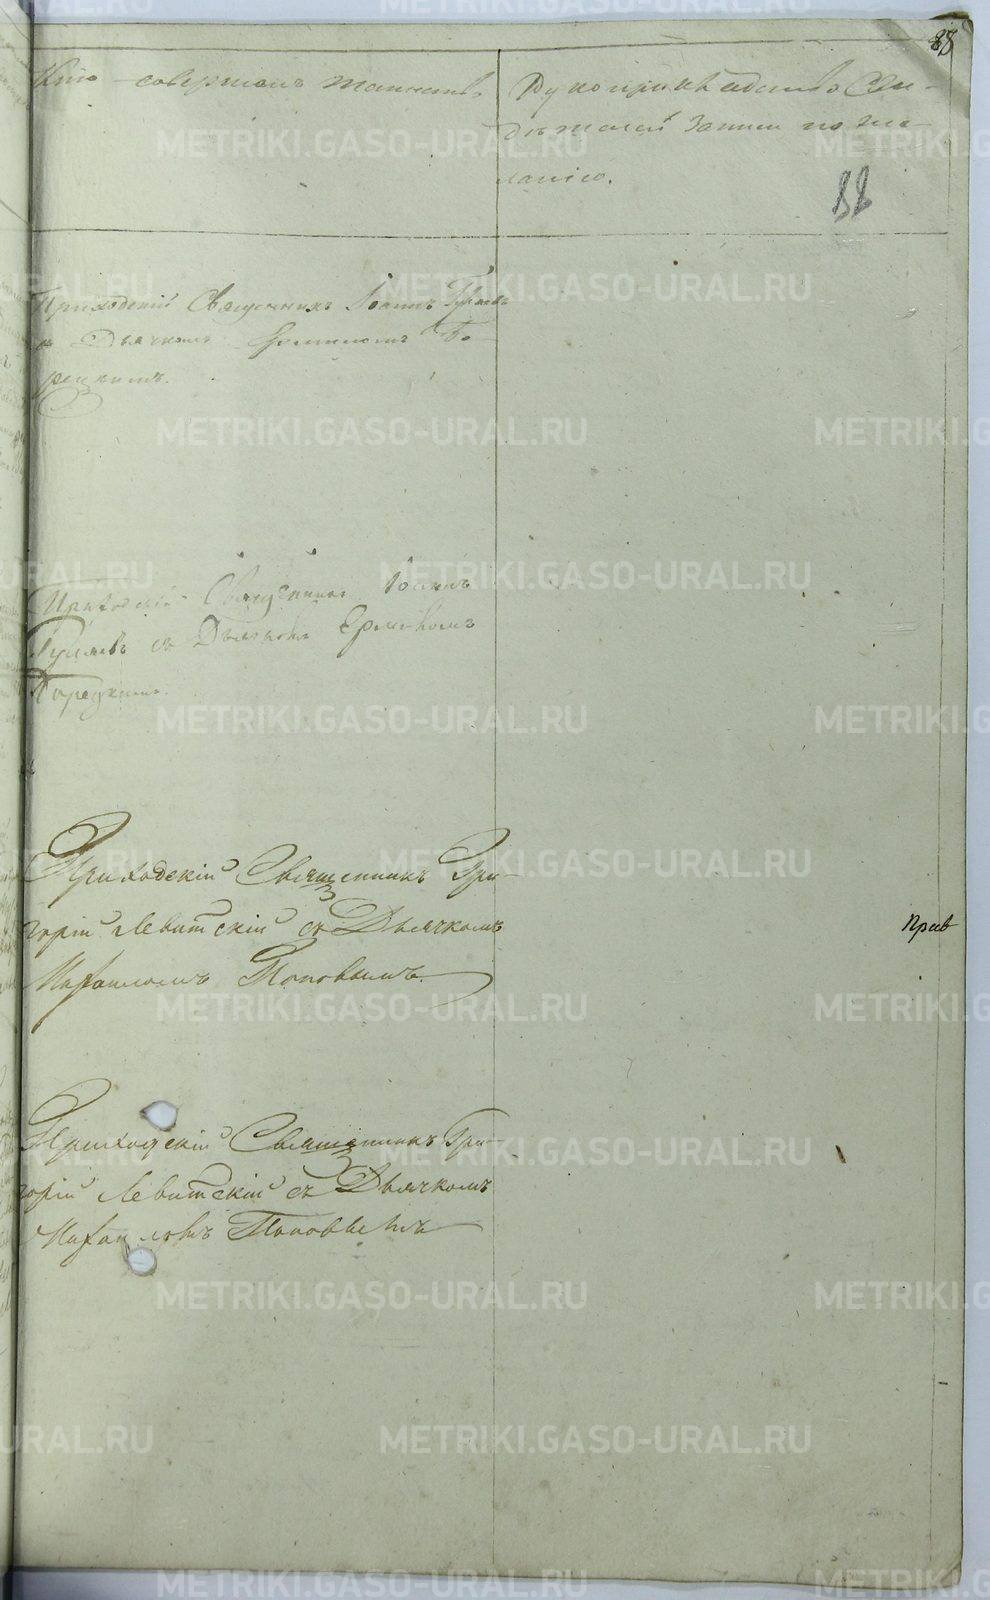 88
Кто совершалъ таинство
Рукоприкладство Сви-
дѣтелей записи по же-
ланію.
88
Приходскій Священникъ Іоаннъ
съ Дьячкомъ
Приходскій Священникъ Іоаннъ
съ Дьячкомъ
Приходскій Священникъ Гри-
горій Левитскій съ Дьячкомъ
Поповымъ.
Прав
Приходскій Священникъ Гри-
горій Левитскій съ Дьячкомъ
Поповымъ
METRIKI.GASO-URAL.RU